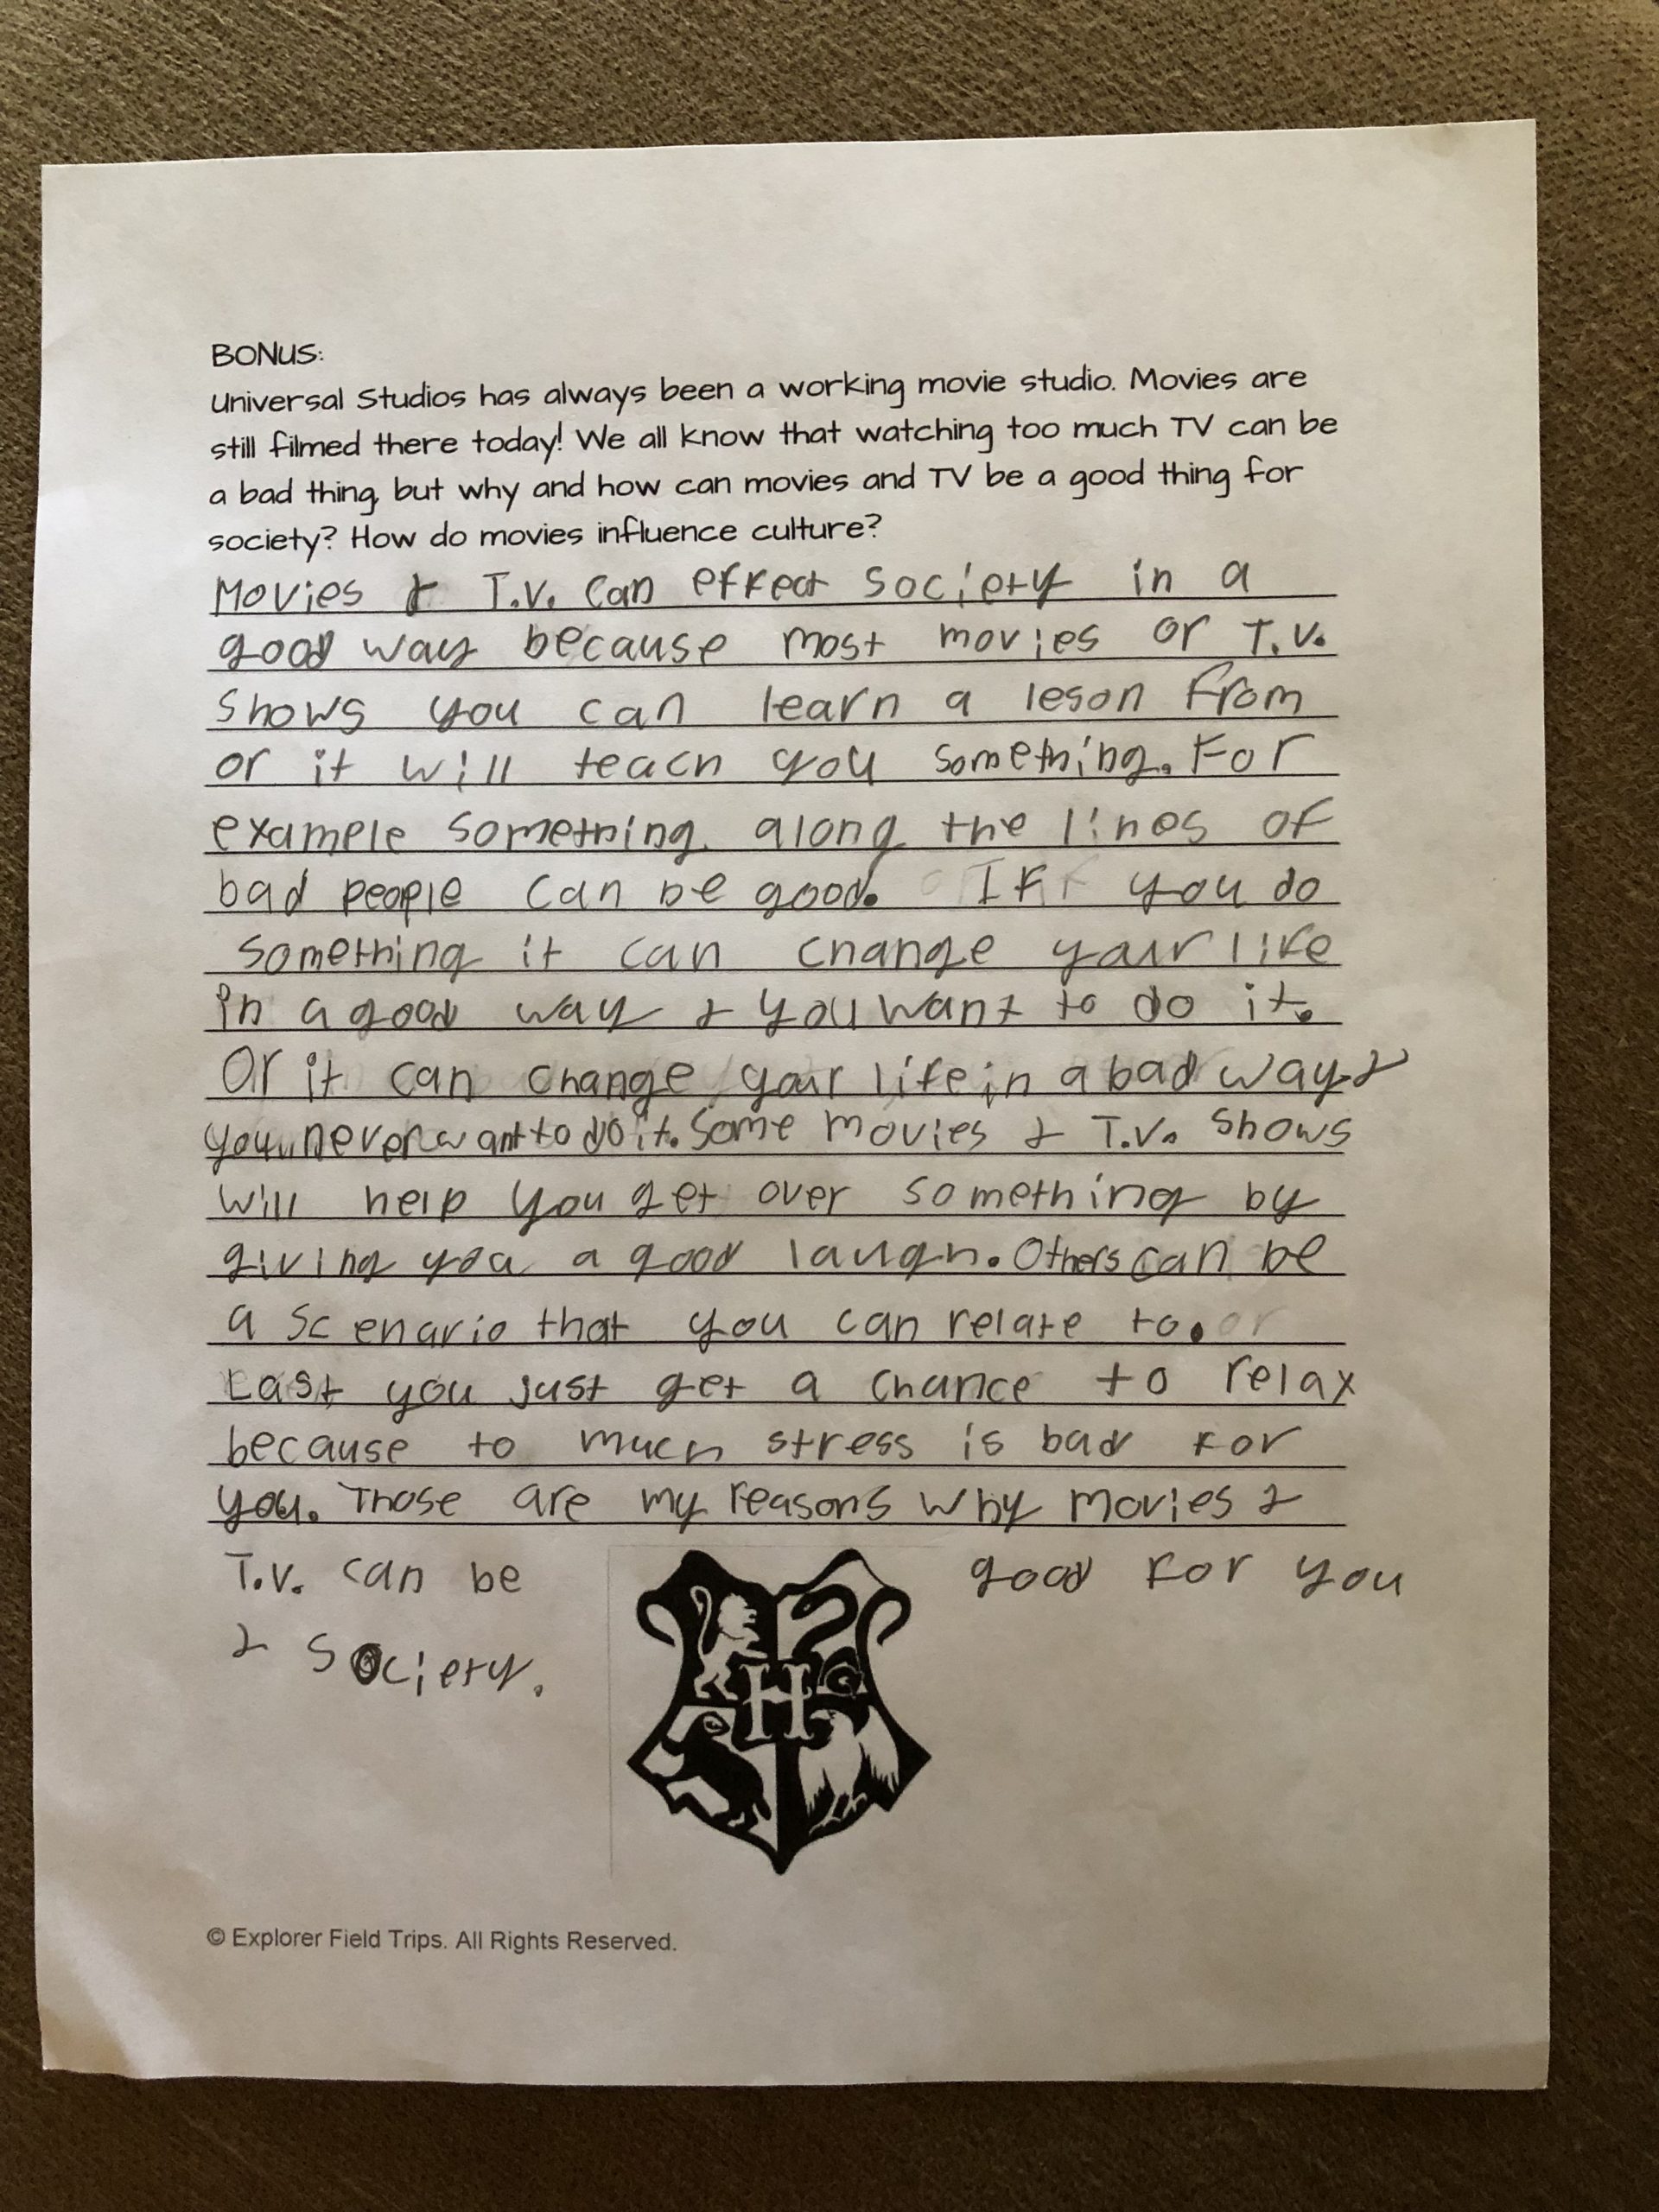 BONUS:
Universal Studios has always been a working movie studio. Movies are
still filmed there today! We all know that watching too much TV can be
a bad thing, but why and how can movies and TV be a good thing for
society? How do movies influence culture?
Movies & T.V. can effect society in a
good way because most movies or T.V.
shows you can learn a leson from
or it will teach you something. For
example something along the lines of
bad people can be good. If you do
something it can change your life
in a good way & you want to do it.
Or it can change your life in a bad way &
you never want to do it. Some movies & T.V. shows
will help you get over something by
giving you a good laugh. Others can be
a scenario that you can relate to.
Last you just get a chance to relax
because to much stress is bad for
you. Those are my reasons why movies &
T.V. can be good for you
& society.
H
© Explorer Field Trips. All Rights Reserved.